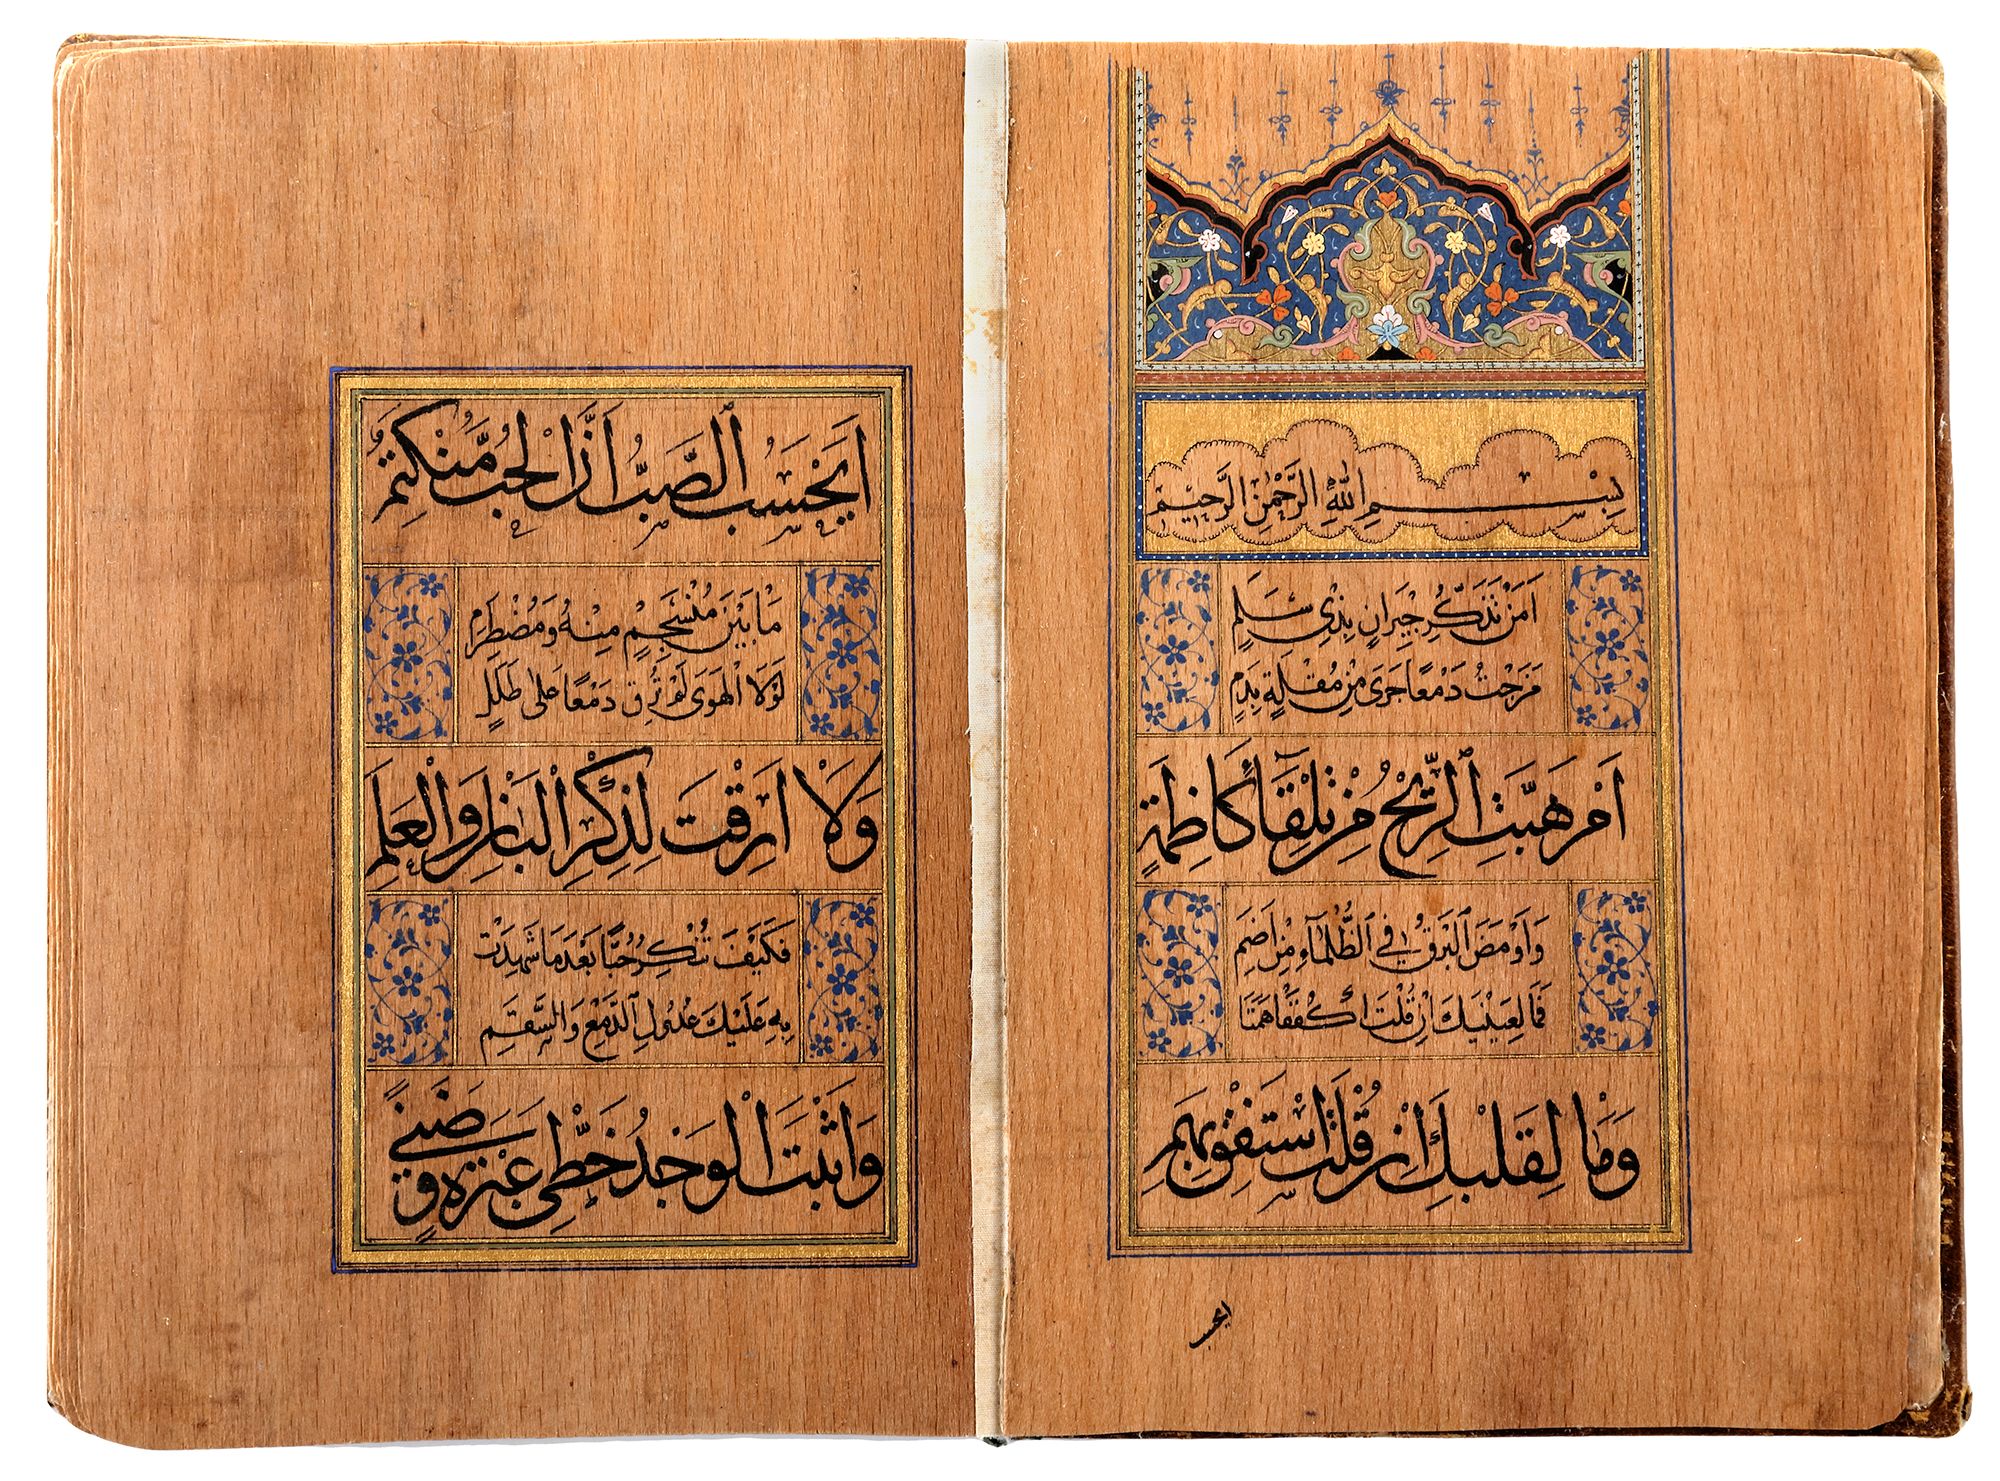 بِسْمِ اللهِ الرَّحْمٰنِ الرَّحِيْمِ
اَمَنْ تَذَكُّرِ جِيْرَانٍ بِذِيْ سَلَمٍ
مَزَجْتَ دَمْعًا جَرَى مِنْ مُقْلَةٍ بِدَمٍ
اَمْ هَبَّتِ الرِّيْحُ مِنْ تِلْقَآءِ كَاظِمَةٍ
وَاَوْمَضَ الْبَرْقُ فِي الظُّلْمَآءِ مِنْ اِضَمِ
فَمَا لِعَيْنَيْكَ اِنْ قُلْتَ اكْفُفَا هَمَتَا
وَمَا لِقَلْبِكَ اِنْ قُلْتَ اسْتَفِقْ يَهِمِ
ايحسب
اَيَحْسَبُ الصَّبُّ اَنَّ الْحُبَّ مُنْكَتِمٌ
مَا بَيْنَ مُنْسَجِمٍ مِنْهُ وَمُضْطَرِمِ
لَوْلَا الْهَوَى لَمْ تُرِقْ دَمْعًا عَلَى طَلَلٍ
وَلَا اَرِقْتَ لِذِكْرِ الْبَانِ وَالْعَلَمِ
فَكَيْفَ تُنْكِرُ حُبًّا بَعْدَ مَا شَهِدَتْ
بِهِ عَلَيْكَ عُدُولُ الدَّمْعِ وَالسَّقَمِ
وَاَثْبَتَ الْوَجْدُ خَطَّيْ عَبْرَةٍ وَضَنًى